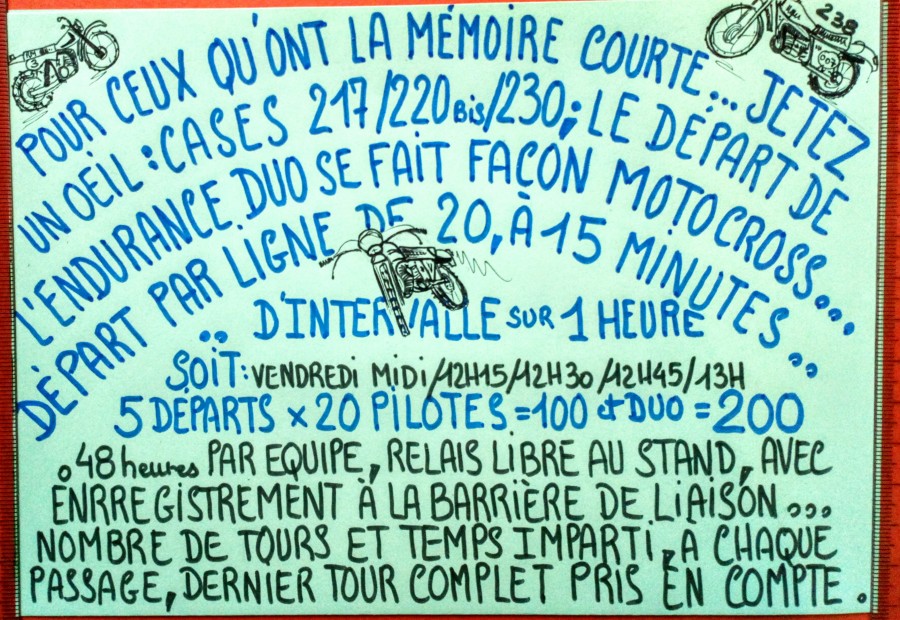 POUR CEUX QU'ONT LA MÉMOIRE COURTE... JETEZ
UN OEIL : CASES 217/220Bis/230; LE DÉPART DE
L'ENDURANCE DUO SE FAIT FAÇON MOTOCROSS....
DÉPART PAR LIGNE DE 20, À 15 MINUTES ..
.. D'INTERVALLE SUR 1 HEURE
SOIT: VENDREDI MIDI/12H15/12H30/12H45/13H
5 DÉPARTS x 20 PILOTES = 100 et DUO = 200
. 48 heures PAR EQUIPE, RELAIS LIBRE AU STAND, AVEC
ENRREGISTREMENT À LA BARRIÈRE DE LIAISON ...
NOMBRE DE TOURS ET TEMPS IMPARTI, A CHAQUE
PASSAGE, DERNIER TOUR COMPLET PRIS EN COMPTE .
238
007